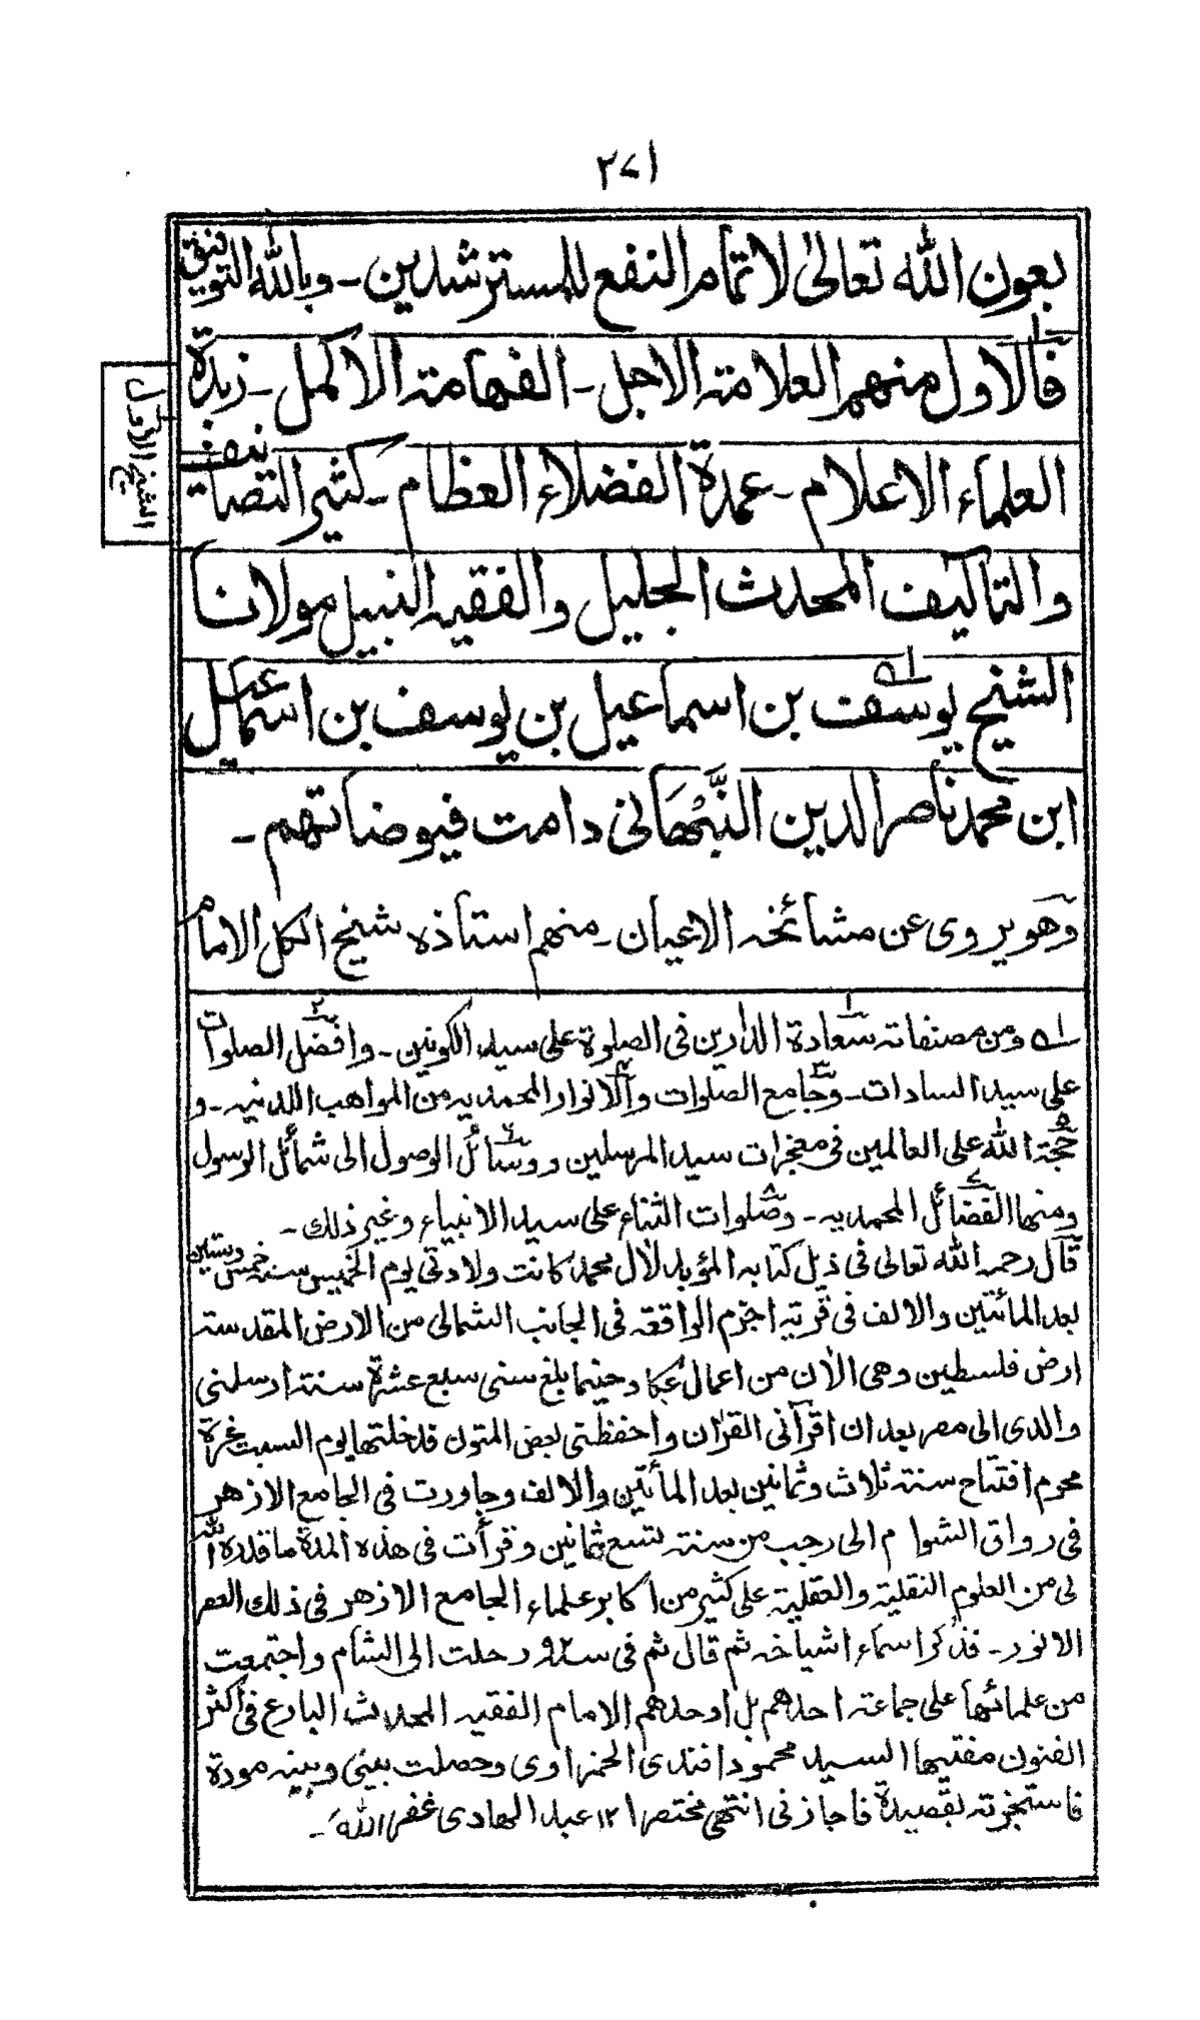 ٢٧١
بعون الله تعالىٰ لاتمام النفع للمسترشدين ـ وبالله التوفيق
فالاول منهم العلامة الاجل ـ الفهامة الاكمل ـ زبدة
الشيخ الأول
العلماء الاعلام ـ عمدة الفضلاء العظام ـ كثير التصانيف
والتاليف المحدث الجليل والفقيه النبيل مولانا
الشيخ يوسف بن اسماعيل بن يوسف بن اسماعيل
ابن محمد ناصر الدين النَّبْهَانى دامت فيوضاتهم ـ
وهو يروى عن مشائخه الاعيان ـ منهم استاذه شيخ الكل الامام
١ ومن مصنفاته سعادة الدارين فى الصلوة على سيد الكونين ـ وافضل الصلوات
على سيد السادات ـ وجامع الصلوات والانوار المحمديه من المواهب اللدنيه ـ و
حجة الله على العالمين فى معجزات سيد المرسلين ووسائل الوصول الى شمائل الرسول
ومنها الفضائل المحمديه ـ وصلوات الثناء على سيد الانبياء وغير ذلك ـ
قال رحمه الله تعالى فى ذيل كتابه المؤبد لاٰل محمد كانت ولادتى يوم الخميس سنة خمس وستين
بعد المائتين والالف فى قرية اجزم الواقعة فى الجانب الشمالى من الارض المقدسة
ارض فلسطين وهى الاٰن من اعمال عُكا وحينما بلغ سنى سبع عشرة سنة ارسلنى
والدى الى مصر بعد ان اقرآنى القراٰن واحفظنى بعض المتون فدخلتها يوم السبت غرة
محرم افتتاح سنة ثلاث وثمانين بعد المأتين والالف وجاورت فى الجامع الازهر
فى رواق الشوام الى رجب من سنة تسع ثمانين وقرأت فى هذه المدة ما قدره الله
لى من العلوم النقلية والعقلية على كثير من اكابر علماء الجامع الازهر فى ذلك العصر
الانور ـ فذكر اسماء اشياخه ثم قال ثم فى سـ٩٢ـه رحلت الى الشام واجتمعت
من علمائها على جماعة احدهم بل اوحدهم الامام الفقيه المحدث البارع فى اكثر
الفنون مفتيها السيد محمود افندى الحمزاوى وحصلت بينى وبينه مودة
فاستجزته بقصيدة فاجازنى انتهى مختصرا ١٢ عبد الهادى غفر الله له ـ